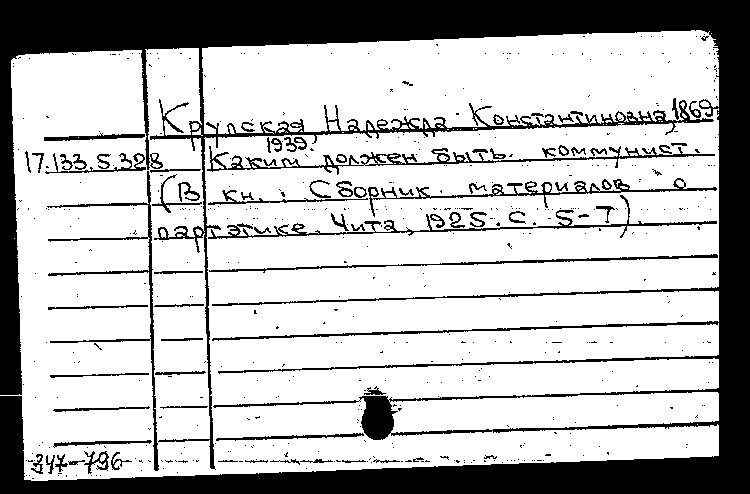 Крупская, Надежда Константиновна, 1869-
1939.
17.133.5.328 Каким должен быть коммунист.
(В кн.: Сборник материалов о
партэтике. Чита, 1925. С. 5-7).
347-796